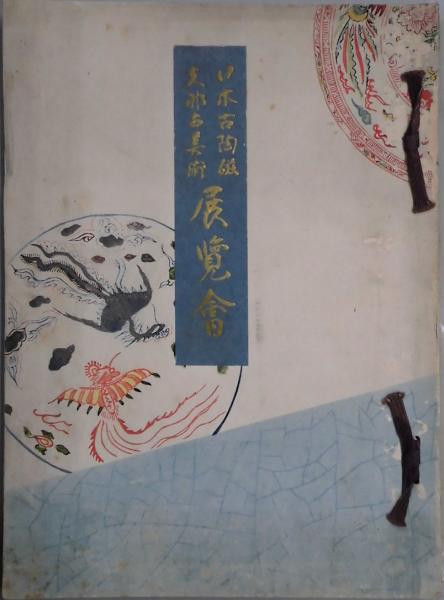 日本古陶磁
支那古美術
展覽會